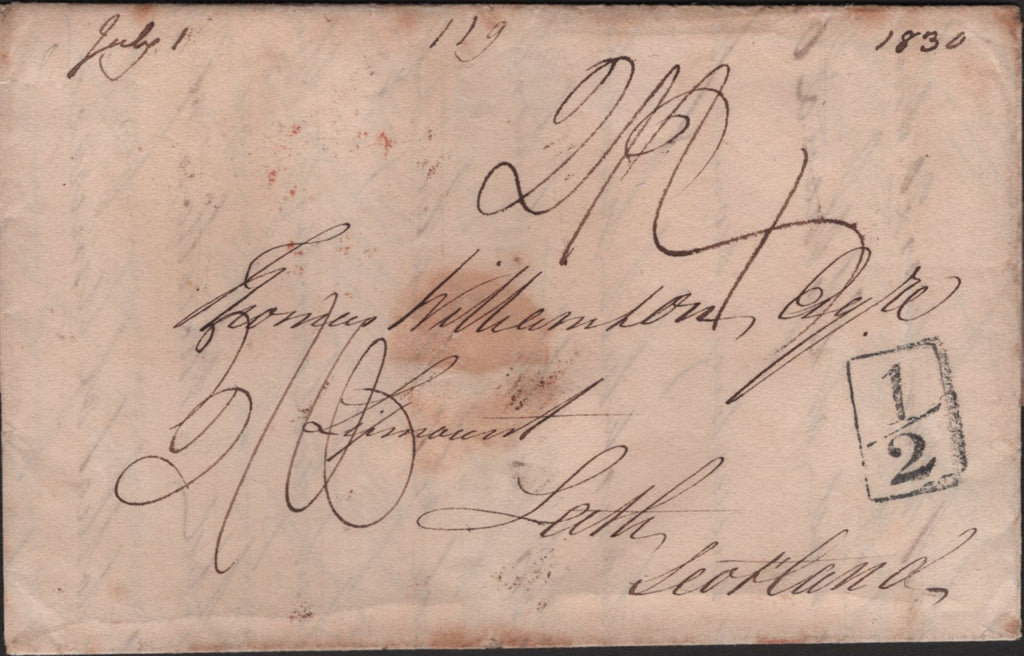 July 1 119 1830
2/4
Thomas Williamson, Esqre
2/8
Leith,
Scotland,
1/2